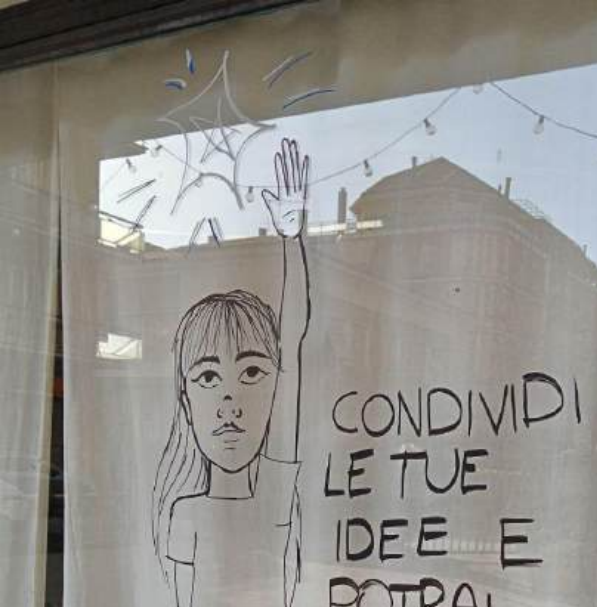 CONDIVIDI
LE TUE
IDEE E
POTRAI